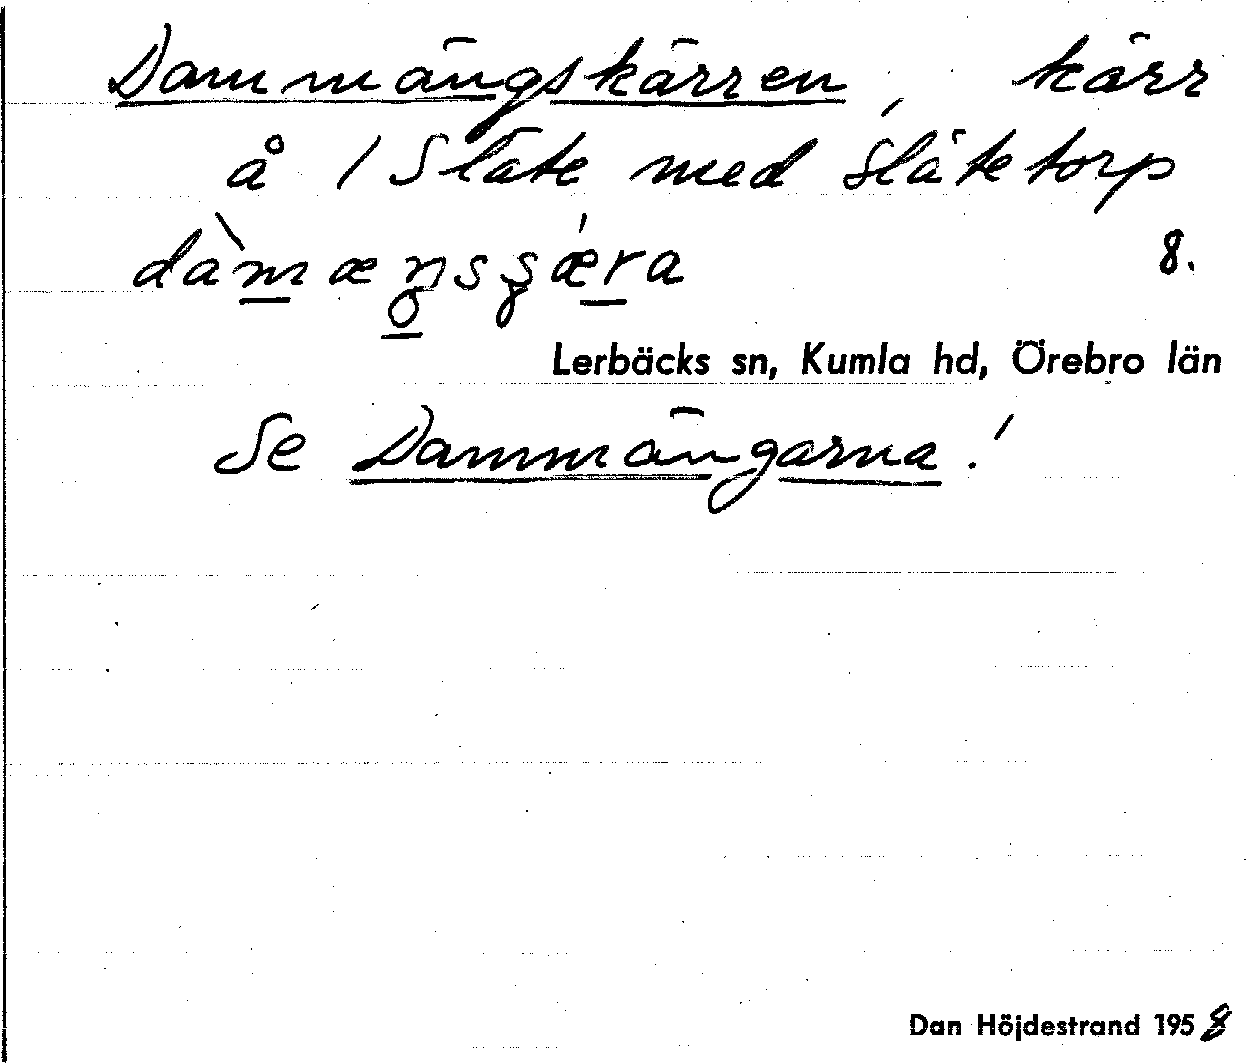 Dammängskärren, kärr
å 1 Släte med Slätetorp
dàmæŋsʂǽra 8.
Lerbäcks sn, Kumla hd, Örebro län
Se Dammängarna!
Dan Höjdestrand 1958